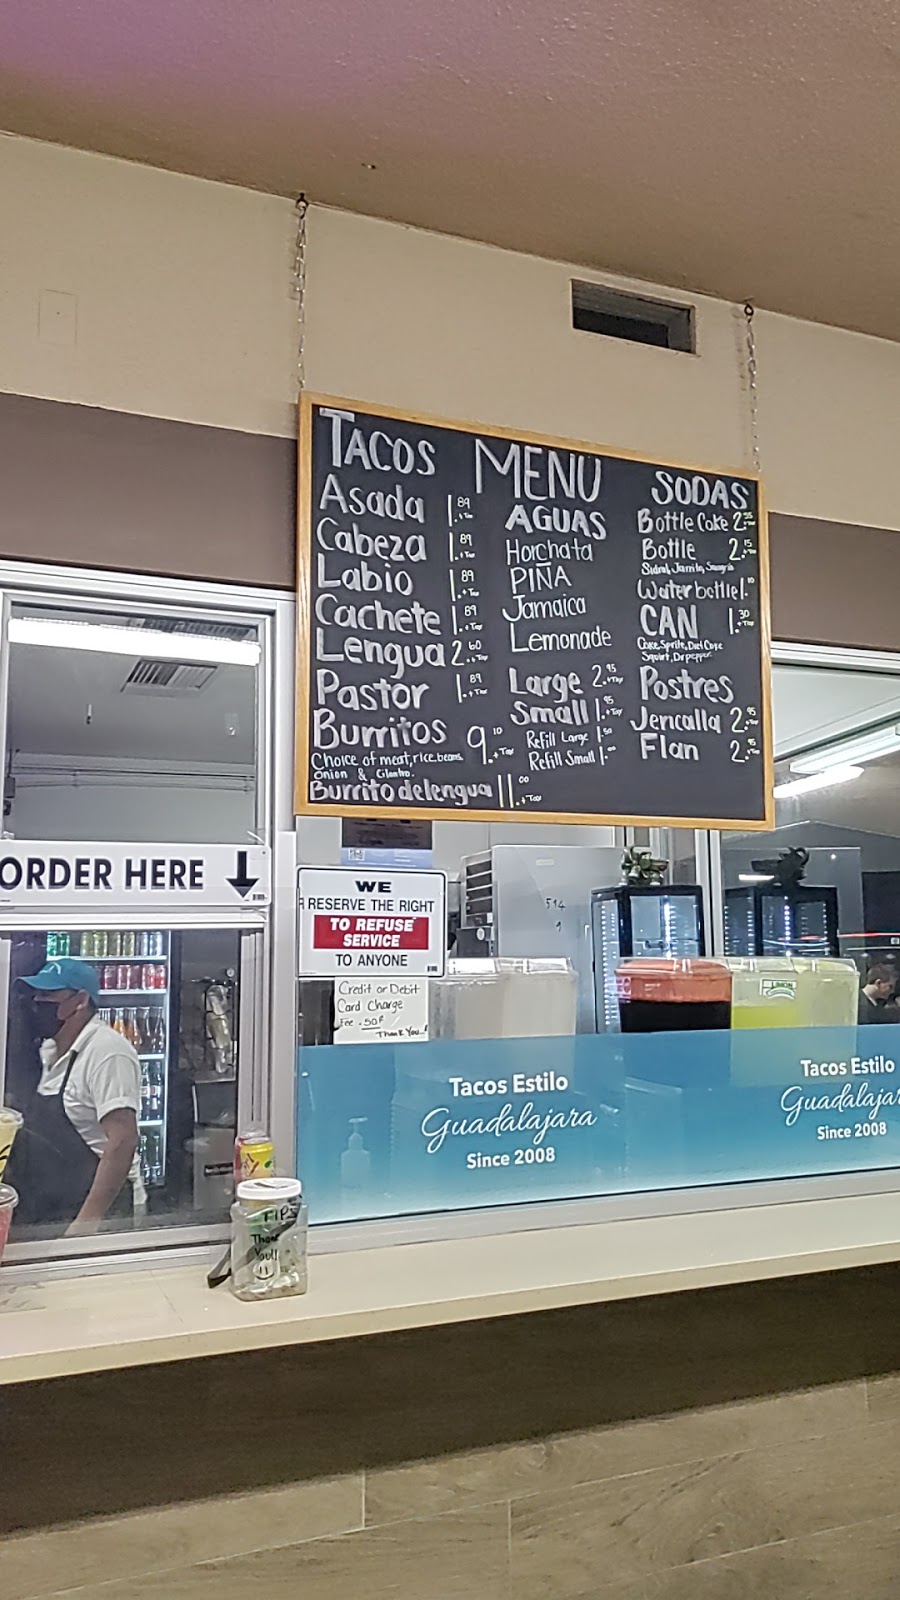 MENU
TACOS
Asada 1.89 +Tax
Cabeza 1.89 +Tax
Labio 1.89 +Tax
Cachete 1.89 +Tax
Lengua 2.60 +Tax
Pastor 1.89 +Tax
Burritos 9.10 +Tax
Choice of meat, rice, beans,
onion & Cilantro.
Burrito de lengua 11.00 +Tax
AGUAS
Horchata
PIÑA
Jamaica
Lemonade
Large 2.95 +Tax
Small 1.95 +Tax
Refill Large 1.50
Refill Small 1.00
SODAS
Bottle Coke 2. +Tax
Bottle 2.15 +Tax
Sidral, Jarrito, Sangria
Water bottle 1.10
CAN 1.30 +Tax
Coke, Sprite, Diet Coke
Squirt, Dr pepper
Postres
Jericalla 2.95 +Tax
Flan 2.95 +Tax
ORDER HERE
WE
RESERVE THE RIGHT
TO REFUSE
SERVICE
TO ANYONE
Credit or Debit
Card Charge
Fee .50¢
Thank You..!
514
LIMON
Tacos Estilo
Guadalajara
Since 2008
Tacos Estilo
Guadalajar
Since 2008
TIPS
Thank
You!!